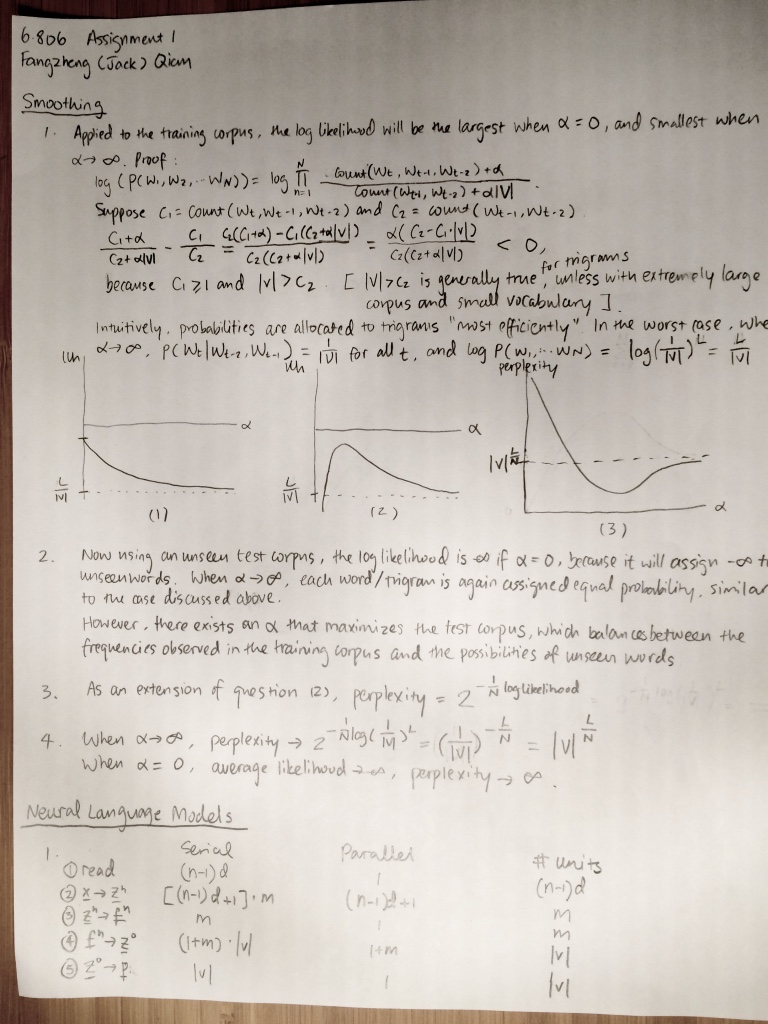 6.806 Assignment 1
Fangzheng (Jack) Qian
Smoothing
1. Applied to the training corpus, the log likelihood will be the largest when α = 0, and smallest when
α→∞. Proof:
log (P(W1, W2, ... WN)) = log ∏_{n=1}^{N} (count(Wt, Wt-1, Wt-2) + α) / (count(Wt-1, Wt-2) + α|V|).
Suppose C1 = count(Wt, Wt-1, Wt-2) and C2 = count(Wt-1, Wt-2)
(C1+α)/(C2+α|V|) - C1/C2 = (C2(C1+α) - C1(C2+α|V|))/(C2(C2+α|V|)) = α(C2-C1·|V|)/(C2(C2+α|V|)) < 0,
because C1 ≥ 1 and |V| > C2. [ |V| > C2 is generally true for trigrams, unless with extremely large
corpus and small vocabulary ].
Intuitively, probabilities are allocated to trigrams "most efficiently". In the worst case, whe
α→∞, P(Wt|Wt-2, Wt-1) = 1/|V| for all t, and log P(W1, ... WN) = log(1/|V|)^L = L/|V|
LLh
α
L/|V|
(1)
LLh
α
L/|V|
(2)
perplexity
|V|^{L/N}
α
(3)
2. Now using an unseen test corpus, the log likelihood is -∞ if α = 0, because it will assign -∞ t
unseen words. When α→∞, each word/trigram is again assigned equal probability, similar
to the case discussed above.
However, there exists an α that maximizes the test corpus, which balances between the
frequencies observed in the training corpus and the possibilities of unseen words
3. As an extension of question (2), perplexity = 2^{-1/N loglikelihood}
4. When α→∞, perplexity → 2^{-1/N log(1/|V|)^L} = (1/|V|)^{-L/N} = |V|^{L/N}
When α = 0, average likelihood → -∞, perplexity → ∞.
Neural Language Models
1. Serial Parallel # units
① read (n-1)d 1 (n-1)d
② x → z^h [(n-1)d+1]·m (n-1)d+1 m
③ z^h → f^h m 1 m
④ f^h → z^o (1+m)·|V| 1+m |V|
⑤ z^o → p |V| 1 |V|